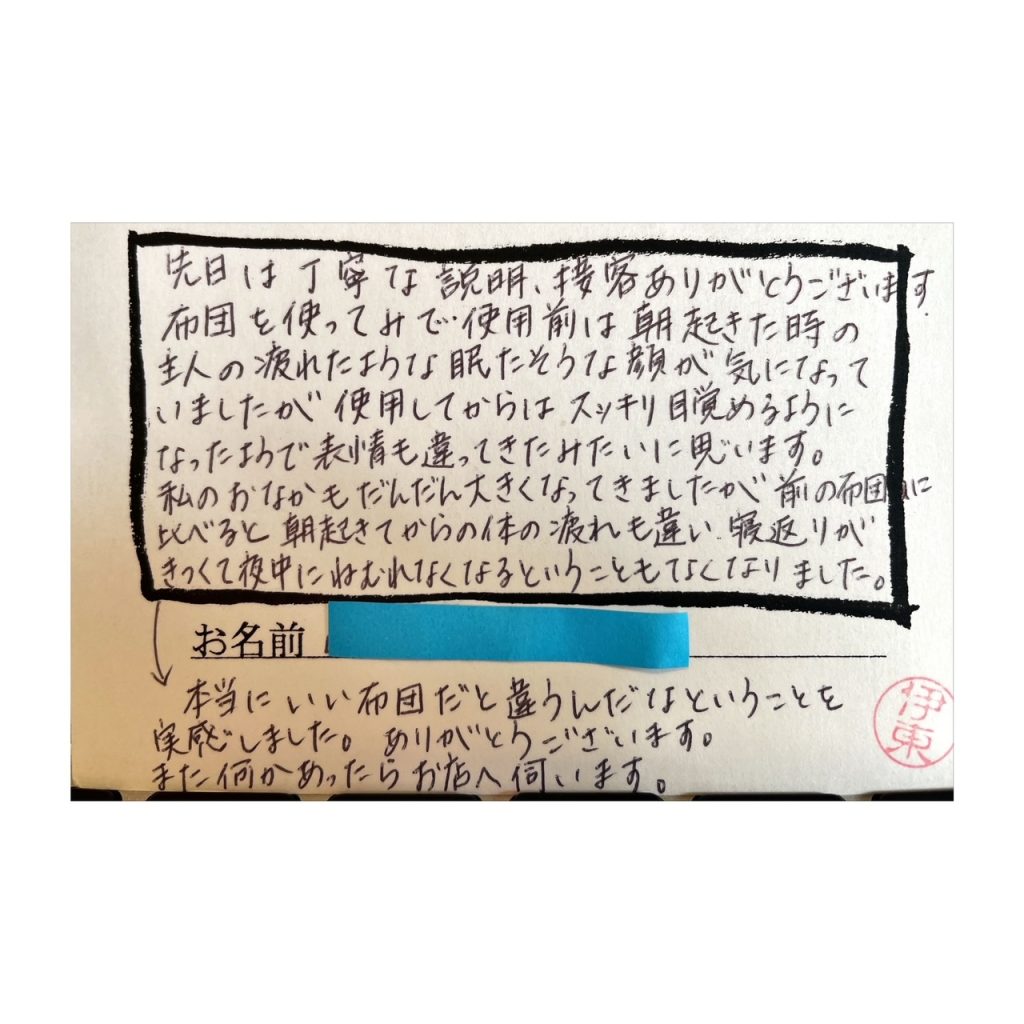 先日は丁寧な説明、接客ありがとうございます.
布団を使ってみて、使用前は朝起きた時の
主人の疲れたような眠たそうな顔が気になって
いましたが使用してからはスッキリ目覚めるように
なったようで表情も違ってきたみたいに思います。
私のおなかもだんだん大きくなってきましたが前の布団に
比べると朝起きてからの体の疲れも違い、寝返りが
きつくて夜中にねむれなくなるということもなくなりました。
お名前
本当にいい布団だと違うんだなということを
実感しました。ありがとうございます。
また何かあったらお店へ伺います。
伊東